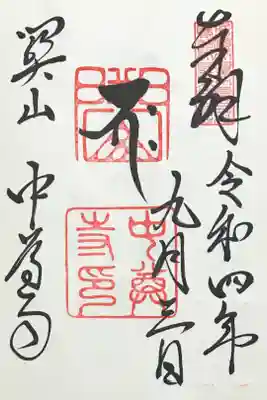 奉拝 令和四年
九月三日
関山 中尊寺
中尊寺印